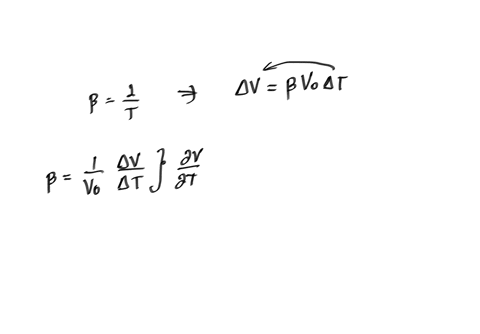 β = 1/T → ΔV = β V₀ ΔT
β = 1/V₀ ΔV/ΔT } ∂V/∂T